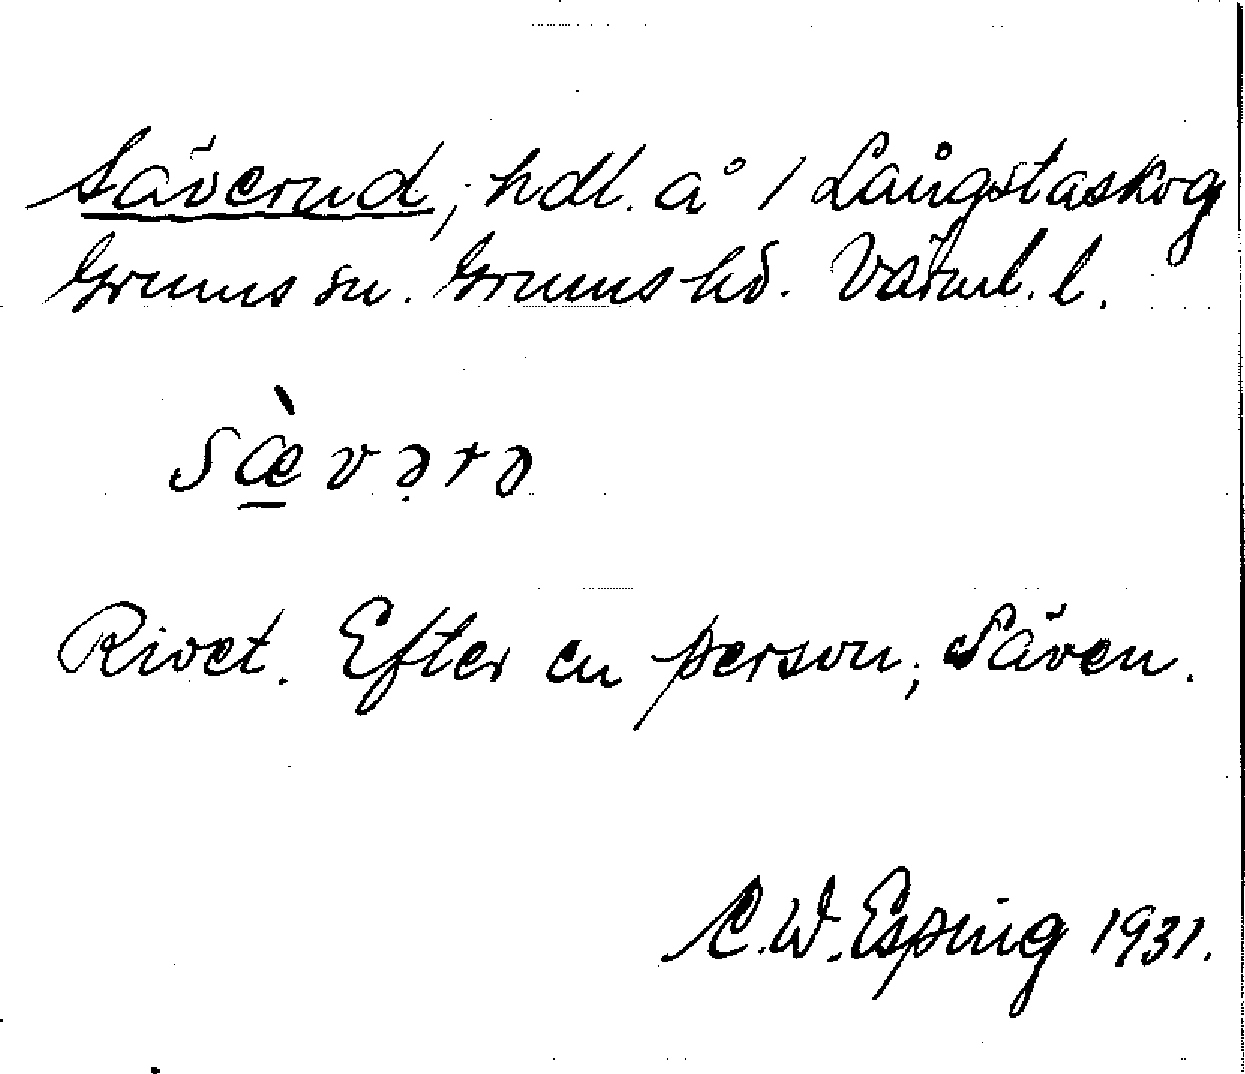 Säverud, hdl. å 1 Långstaskog
Grums sn. Grums hd. Värml. l.
sæ̀vərə
Rivet. Efter en person, Säven.
C.W. Esping 1931.